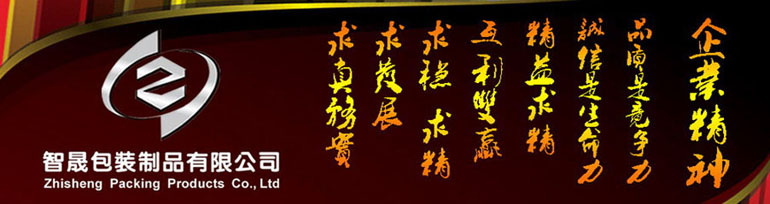 智晟包装制品有限公司
Zhisheng Packing Products Co., Ltd
企業精神
品质是竟争力
誠信是生命力
精益求精
互利雙贏
求穩求精
求發展
求真務實